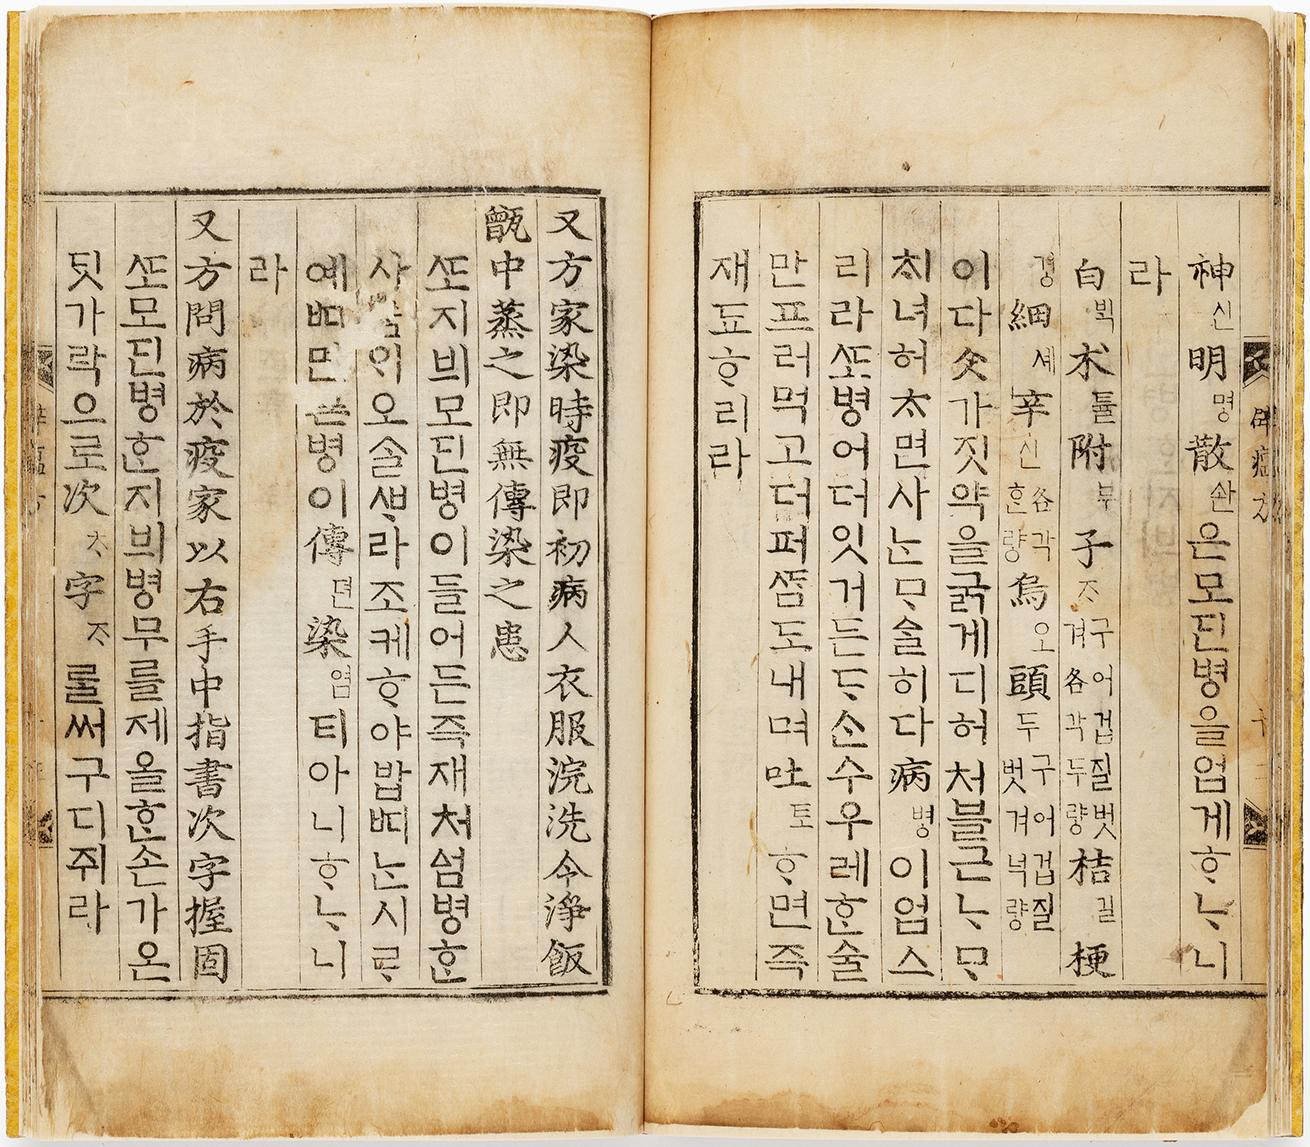 神신明명散솬은모딘병을업게ᄒᆞᄂᆞ니
라
白ᄇᆡᆨ朮튤附부子ᄌᆞ구어겁질벗겨各각두량桔길梗
경細셰辛신各각ᄒᆞᆫ량烏오頭두구어겁질벗겨넉량
이다ᄉᆞᆺ가짓약을굵게디허처블근ᄂᆞᄆᆞ
ᄎᆡ녀허ᄎᆞ면사ᄂᆞᆫᄆᆞᅀᆞᆯ히다病병이업스
리라ᄯᅩ병어더잇거든ᄃᆞᄉᆞᆫ수우레ᄒᆞᆫ술
만프러먹고더퍼ᄯᆞᆷ도내며吐토ᄒᆞ면즉
재됴ᄒᆞ리라
又方家染時疫即初病人衣服浣洗令淨飯
甑中蒸之即無傳染之患
ᄯᅩ지븨모딘병이들어든즉재처섬병ᄒᆞᆫ
사ᄅᆞᆷᄋᆡ오ᄉᆞᆯᄲᆞ라조케ᄒᆞ야밥ᄠᅵᄂᆞᆫ시ᄅᆞ
예ᄠᅵ면병이傳뎐染염티아니ᄒᆞᄂᆞ니
라
又方問病於疫家以右手中指書次字握固
ᄯᅩ모딘병ᄒᆞᆫ지븨병무를제올ᄒᆞᆫ손가온
딧가락으로次ᄎᆞ字ᄌᆞ룰써구디쥐라